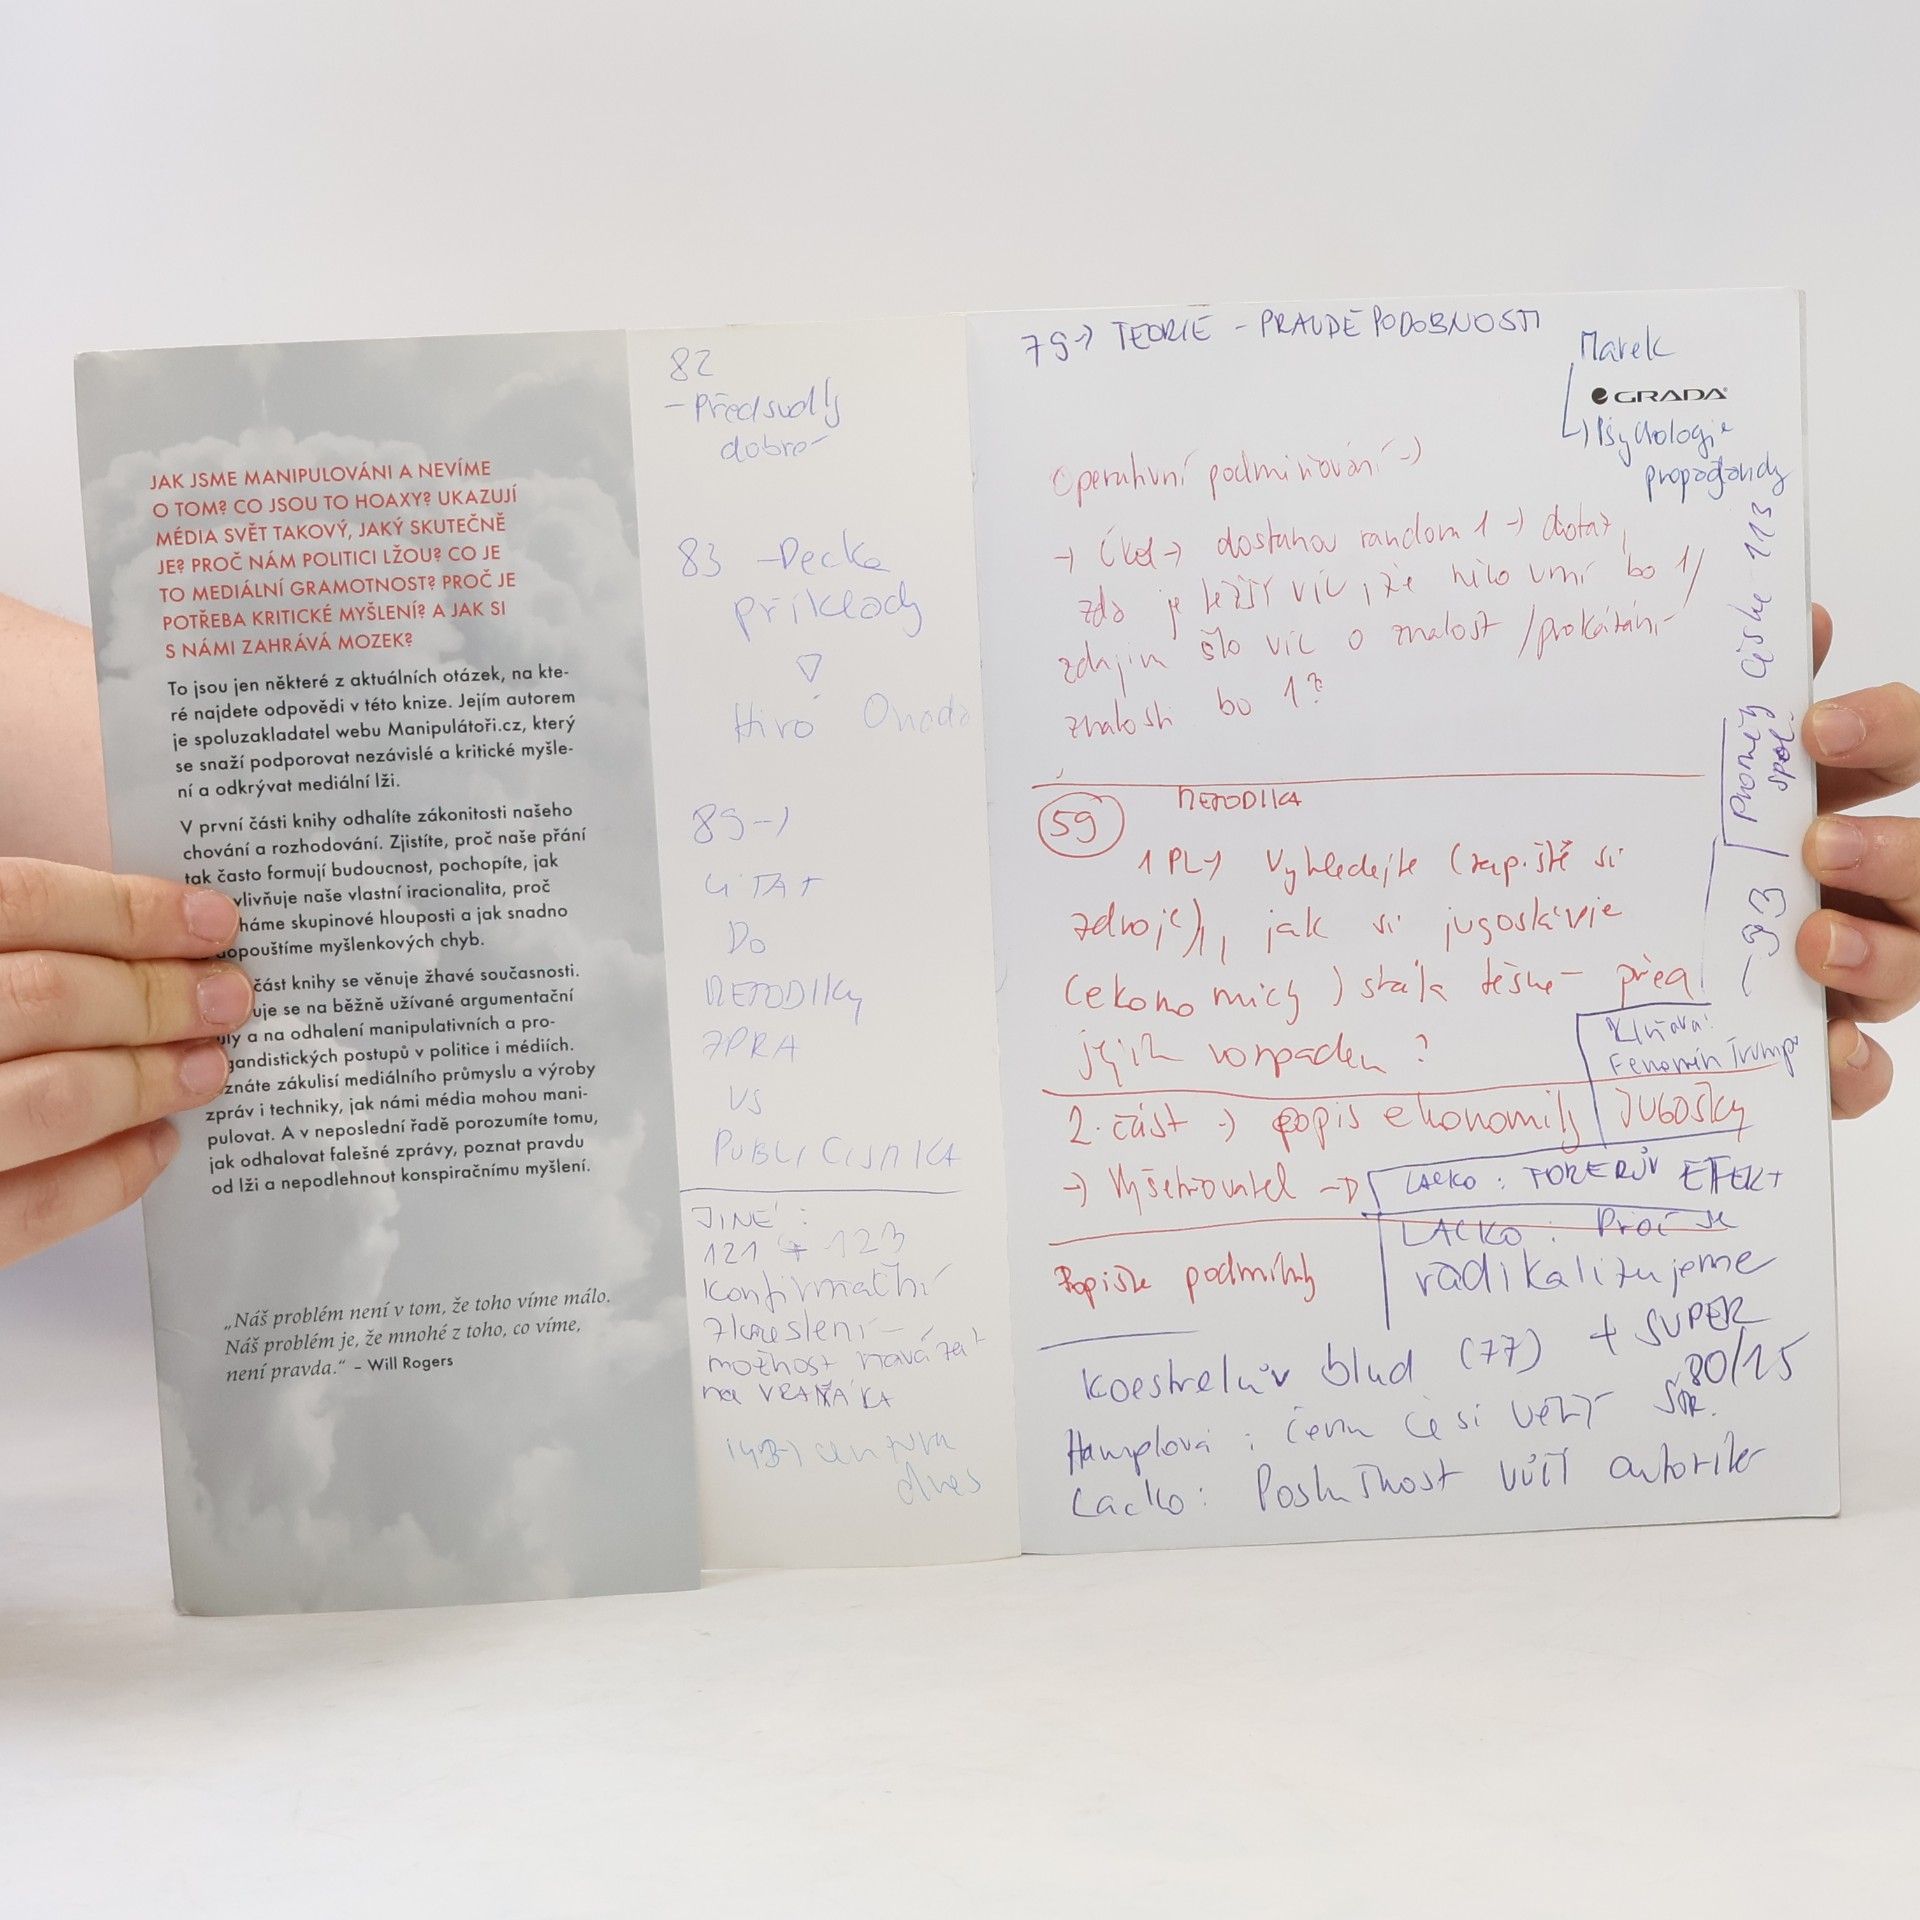 JAK JSME MANIPULOVÁNI A NEVÍME
O TOM? CO JSOU TO HOAXY? UKAZUJÍ
MÉDIA SVĚT TAKOVÝ, JAKÝ SKUTEČNĚ
JE? PROČ NÁM POLITICI LŽOU? CO JE
TO MEDIÁLNÍ GRAMOTNOST? PROČ JE
POTŘEBA KRITICKÉ MYŠLENÍ? A JAK SI
S NÁMI ZAHRÁVÁ MOZEK?
To jsou jen některé z aktuálních otázek, na kte-
ré najdete odpovědi v této knize. Jejím autorem
je spoluzakladatel webu Manipulátoři.cz, který
se snaží podporovat nezávislé a kritické myšle-
ní a odkrývat mediální lži.
V první části knihy odhalíte zákonitosti našeho
chování a rozhodování. Zjistíte, proč naše přání
tak často formují budoucnost, pochopíte, jak
vlivňuje naše vlastní iracionalita, proč
háme skupinové hlouposti a jak snadno
dopouštíme myšlenkových chyb.
část knihy se věnuje žhavé současnosti.
uje se na běžně užívané argumentační
uly a na odhalení manipulativních a pro-
gandistických postupů v politice i médiích.
znáte zákulisí mediálního průmyslu a výroby
zpráv i techniky, jak námi média mohou mani-
pulovat. A v neposlední řadě porozumíte tomu,
jak odhalovat falešné zprávy, poznat pravdu
od lži a nepodlehnout konspiračnímu myšlení.
„Náš problém není v tom, že toho víme málo.
Náš problém je, že mnohé z toho, co víme,
není pravda.“ – Will Rogers
82
- Předsudky
dobré
83 - Pecka
příklady
Hiró Onoda
89 →
CITÁT
DO
METODIKY
ZPRÁ
VS
PUBLICISTIKA
JINÉ:
121 + 123
Konfirmační
zkreslení -
možnost navázat
na VRAŇÁKA
dnes
79 → TEORIE - PRAVDĚPODOBNOSTI
Marek
GRADA
→ Psychologie
propagandy
Operativní podmiňování →
→ Úkol → dostanou random 1 → dotaz,
zda je těší víc, že něco umí bo 1/
zdajim šlo víc o znalost / prokázání
znalosti bo 1?
59 METODIKA
1 PL → Vyhledejte (zapiště si
zdroje), jak si jugoslávie
(ekonomicky) stála těsně před
jejich rozpadem?
2. část → popis ekonomiky JUGOŠKY
→ Vyšetřovatel →
Popište podmínky
93
Proměny České 113
spol.
Klíňová:
Fenomén Trump
LACKO: FORERŮV EFEKT
LACKO: Proč se
radikalizujeme
Koestrelův blud (77) + SUPER
STR. 80/15
Hamplová: čemu če si věří
Lacko: Poslušnost vůči autoritě